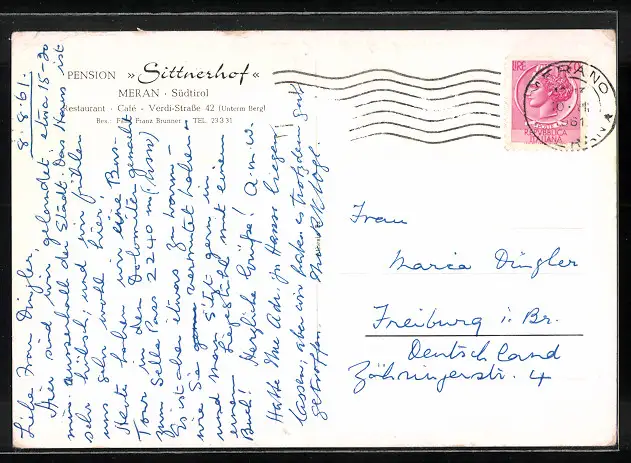 PENSION »Sittnerhof«
MERAN · Südtirol
Restaurant · Café · Verdi-Straße 42 (Unterm Berg)
Bes.: Franz Brunner · TEL. 23331
LIRE
MERANO
61
REPVBBLICA
ITALIANA
8.8.61.
Liebe Frau Dingler,
Hier sind wir gelandet, etwa 15-20
min. ausserhalb der Stadt. Das Haus ist
sehr hübsch, und wir fühlen
uns sehr wohl hier.
Heute haben wir eine Bus-
Tour in den Dolomiten gemacht
zum Sella Pass 2240 m
Es ist aber etwas zu warm
wie Sie vermutet haben
und man sitzt gern in
einem Liegestuhl mit einem
Buch! Herzliche Grüße! A.m.w.
Hatte Ihre Adr. zu Hause liegen
lassen, aber wir haben es trotzdem gut
getroffen.
Frau
Maria Dingler
Freiburg i. Br.
Deutschland
Zähringerstr. 4